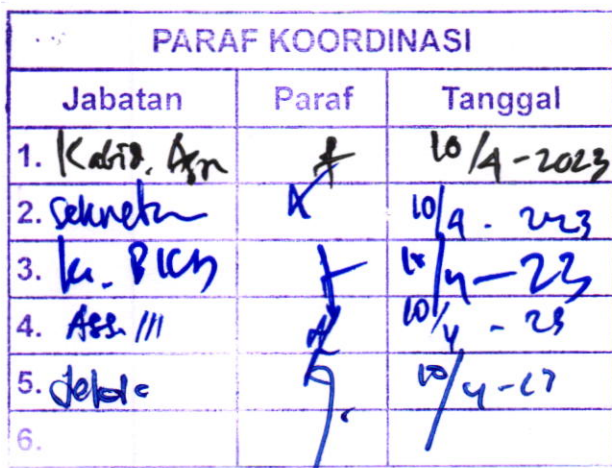 PARAF KOORDINASI
Jabatan Paraf Tanggal
1. Kabid. 10/4-2023
2. 10/4. 2023
3. Ka. 10/4-23
4. Ass. III 10/4 - 23
5. 10/4-23
6.